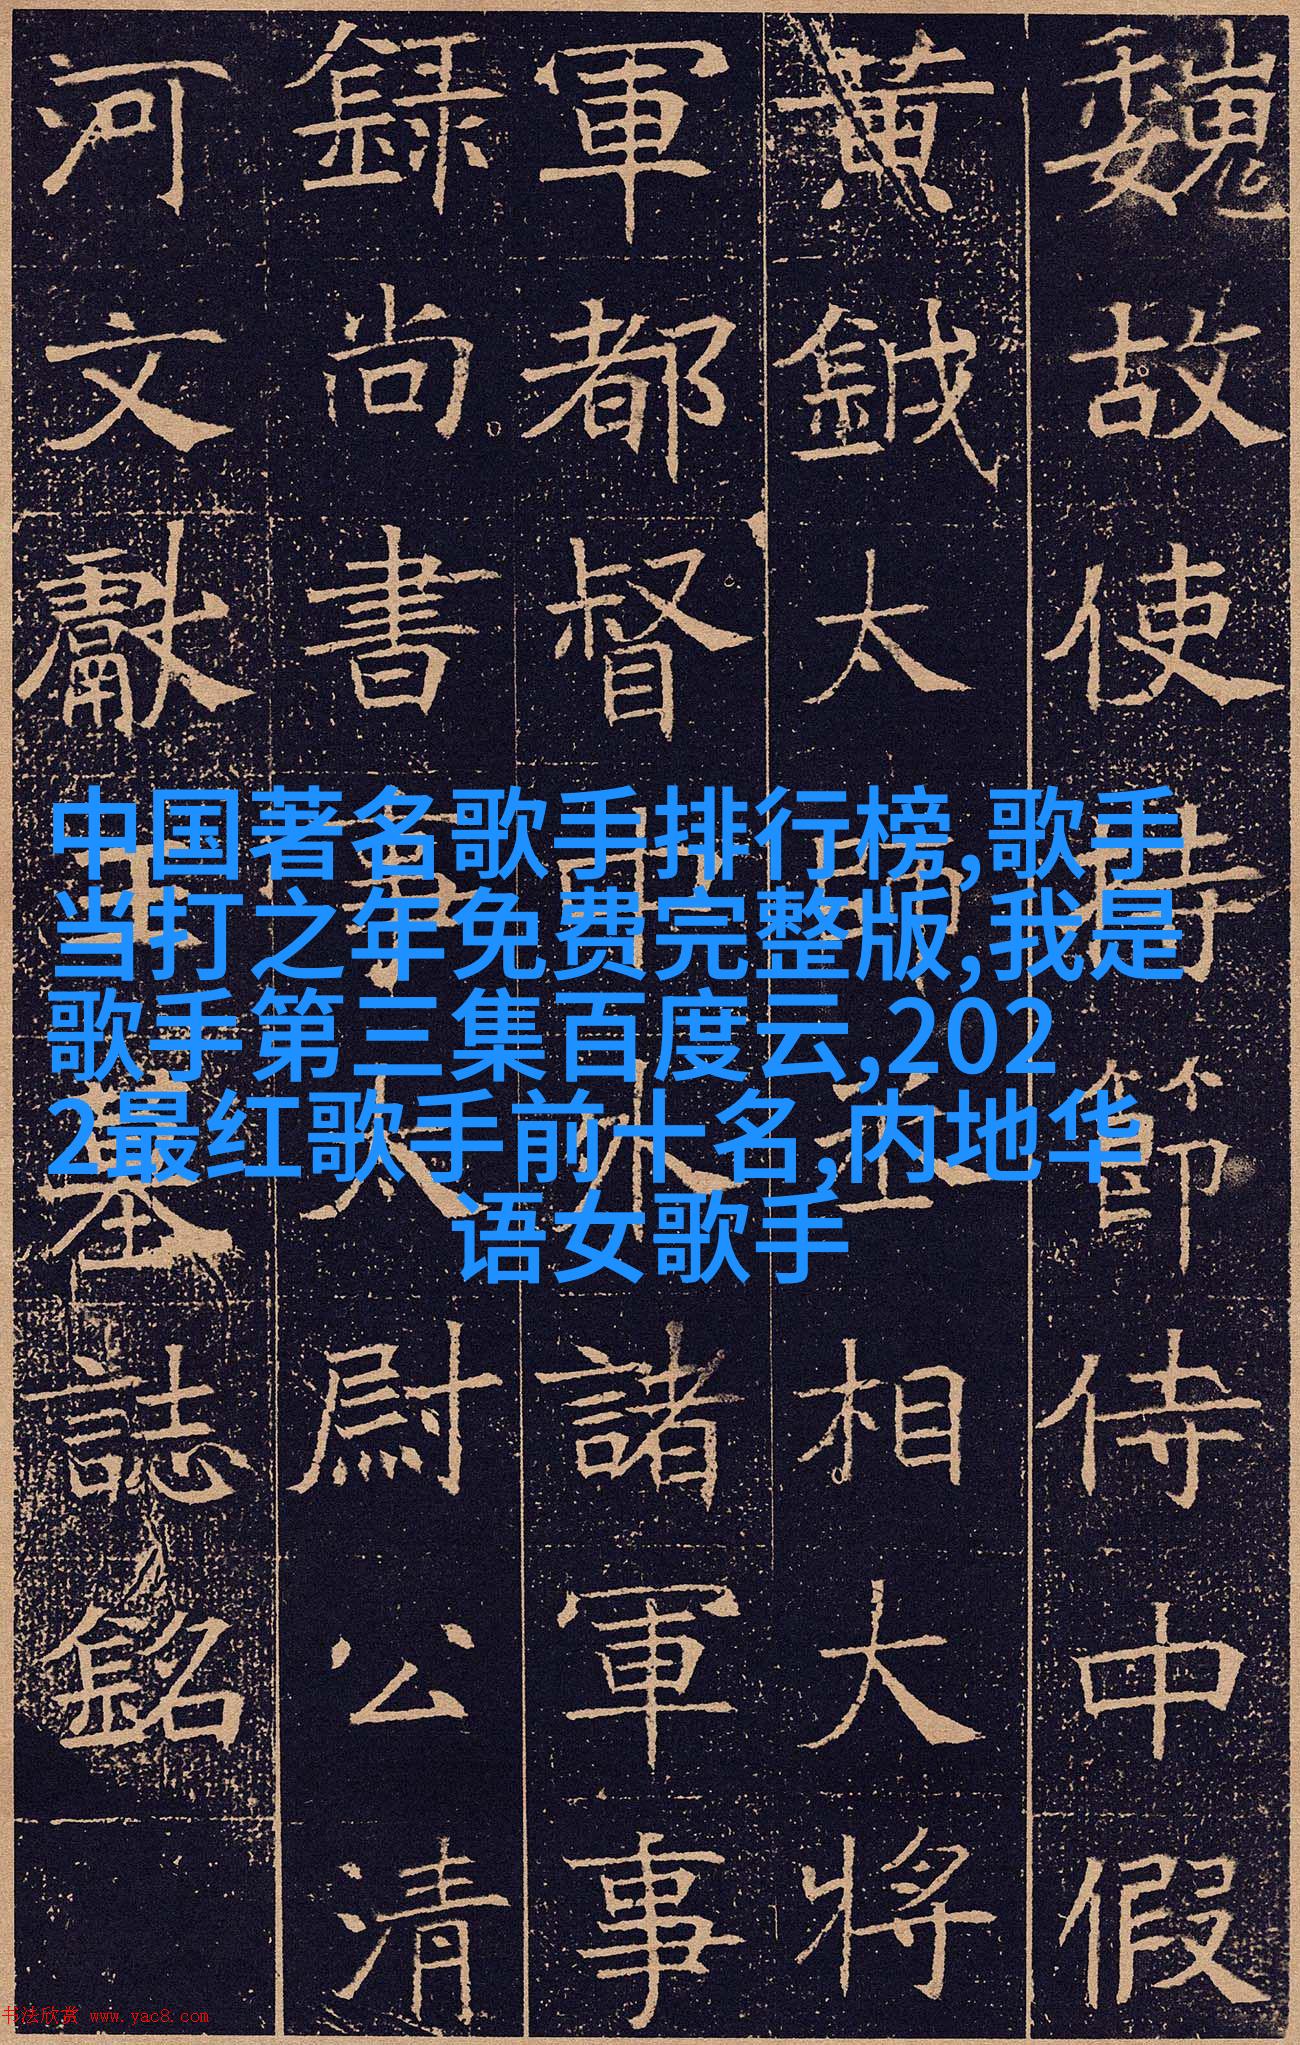 魏故使持節侍中假
黄鉞太師丞相大將
軍都督中外諸軍事
録尚書事太尉公清
河文獻王墓誌銘
中国著名歌手排行榜,歌手
当打之年免费完整版,我是
歌手第三集百度云,202
2最红歌手前十名,内地华
语女歌手
书法欣赏 www.yac8.com